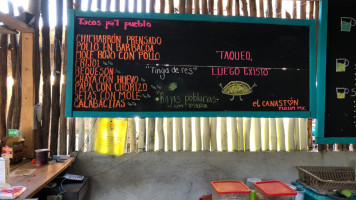 Tacos pa'l pueblo
CHICHARRÓN PRENSADO
POLLO EN BARBACOA
MOLE ROJO CON POLLO
FRIJOL
REQUESÓN
CHAYA CON HUEVO
PAPA CON CHORIZO
RAJAS CON MOLE
CALABACITAS
"Tinga de res"
Rajas poblanas
TAQUEO,
LUEGO EXISTO
EL CANASTÓN
TULUM.MX